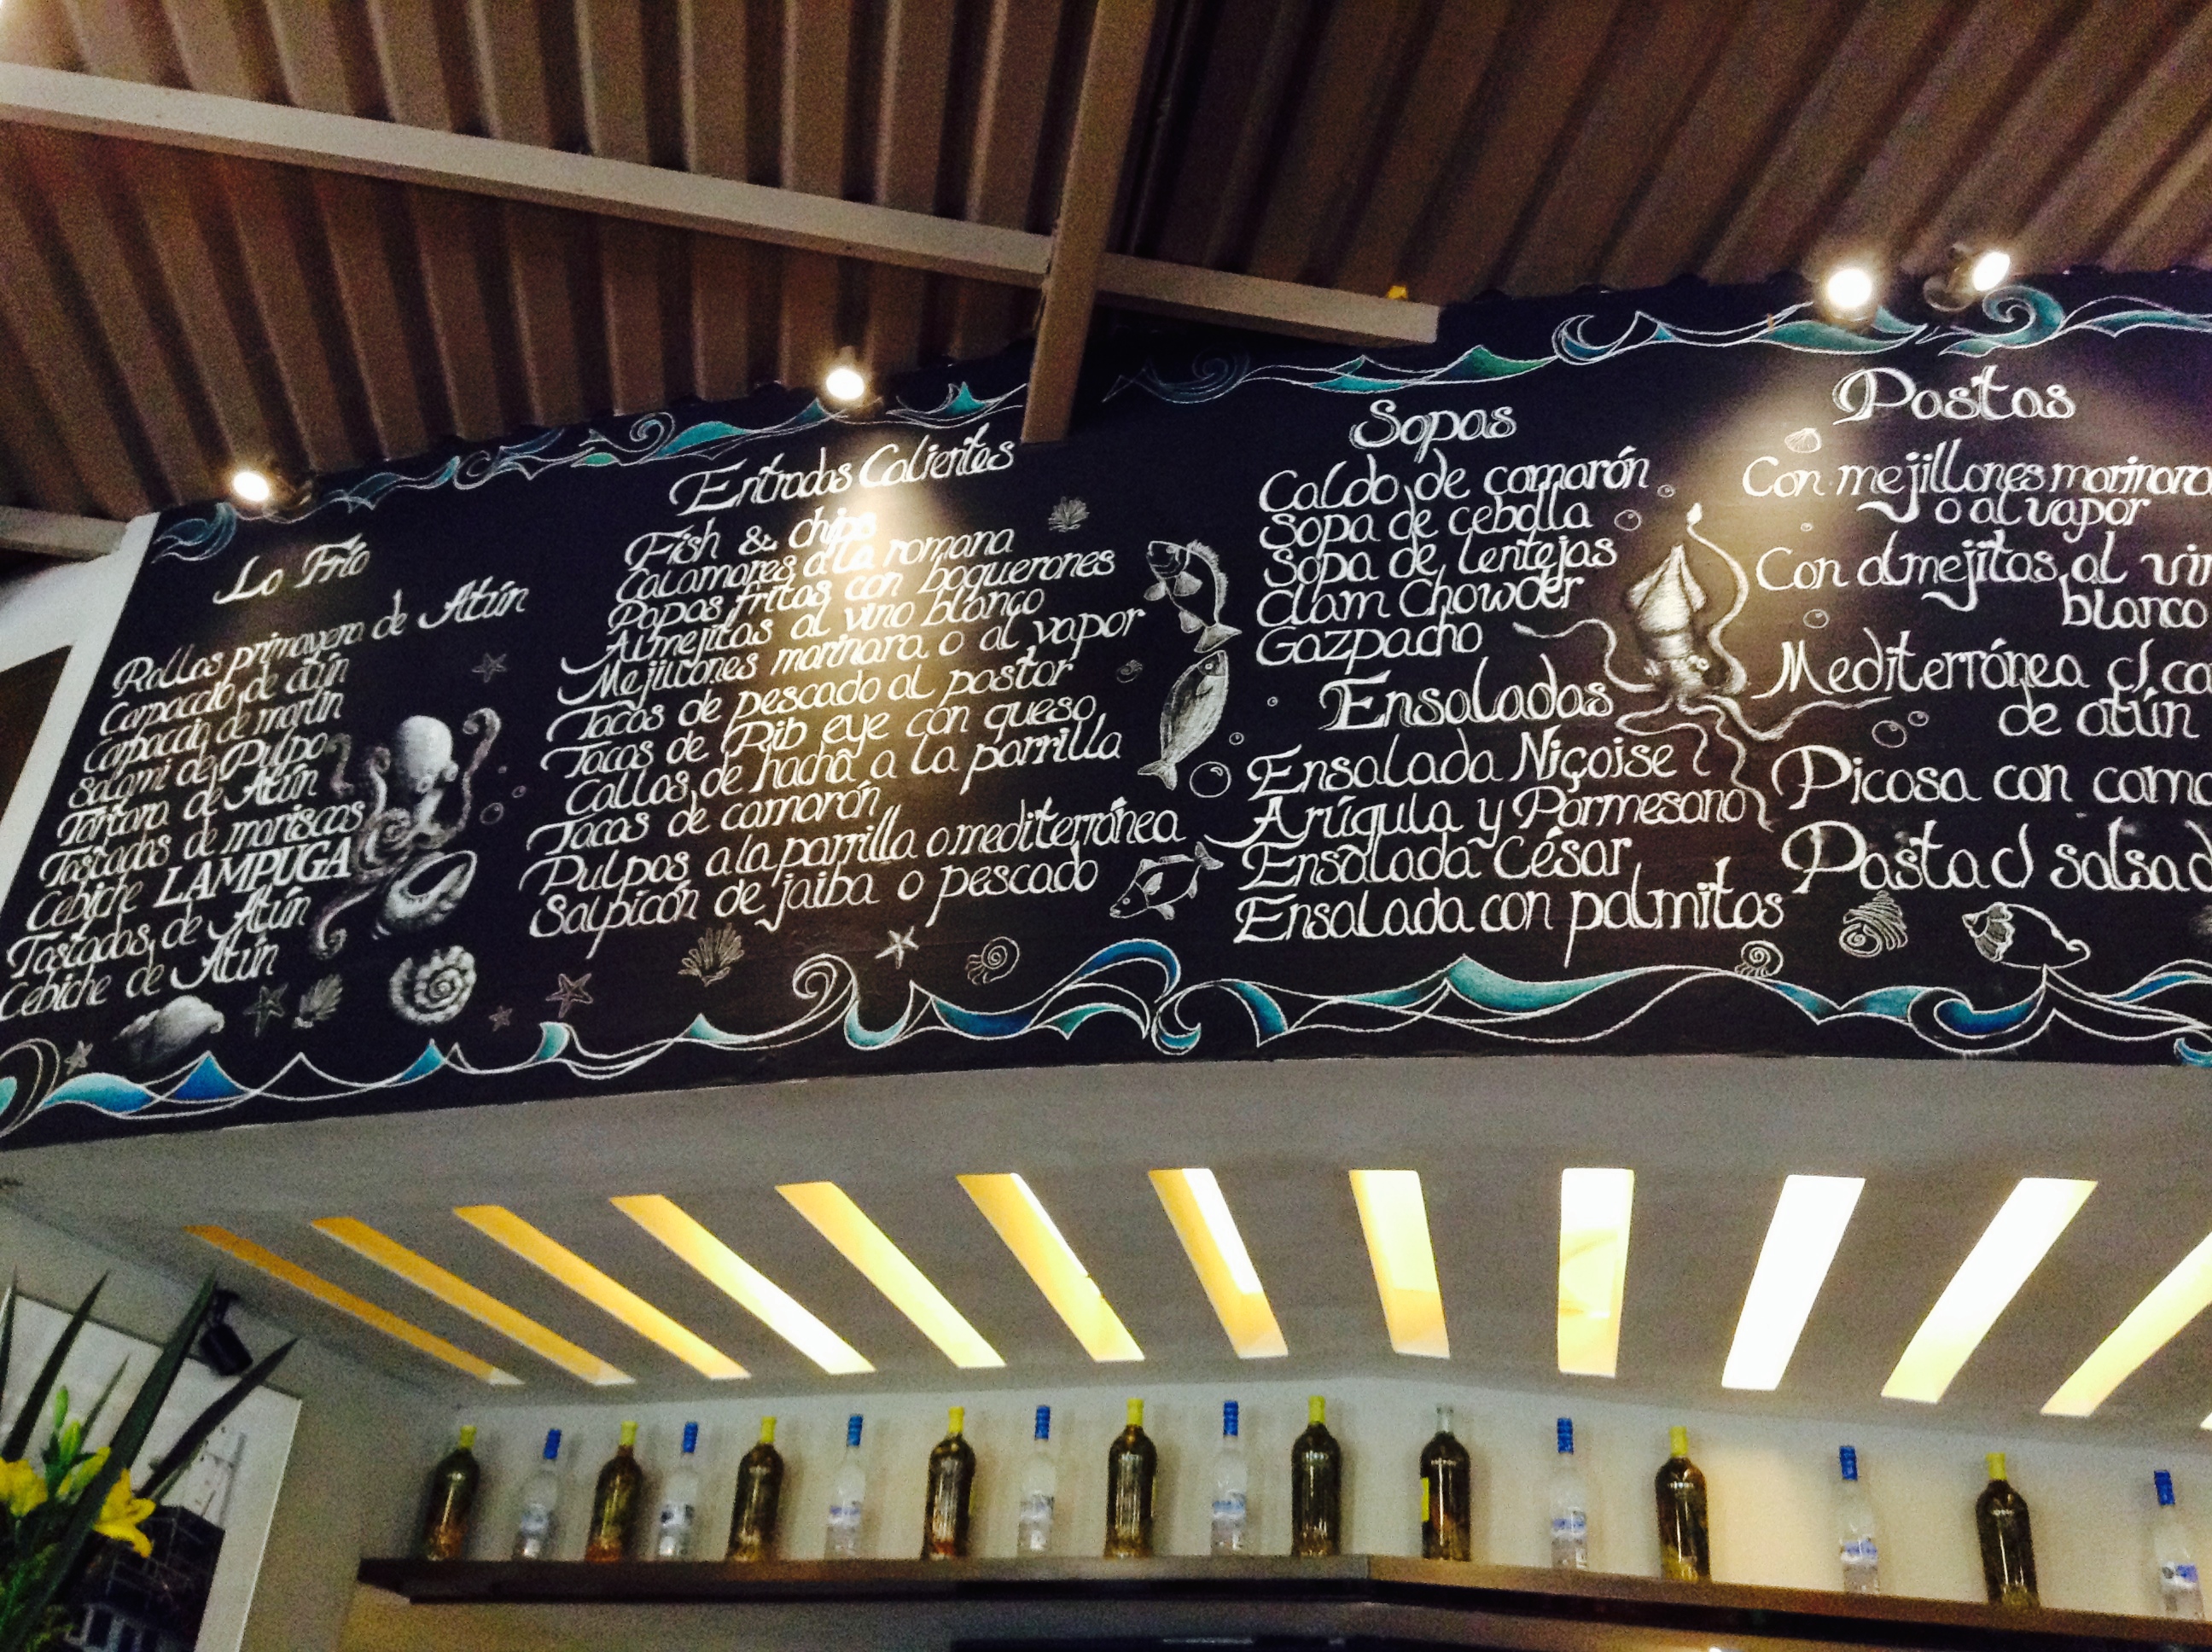 Lo Frío
Rollos primavera de Atún
Carpaccio de atún
Carpaccio de marlin
Salami de Pulpo
Tártara de Atún
Tostadas de mariscos
Cebiche LAMPUGA
Tostadas de Atún
Cebiche de Atún
Entradas Calientes
Fish & chips
Calamares a la romana
Papas fritas con boquerones
Almejitas al vino blanco
Mejillones marinara o al vapor
Tacos de pescado al pastor
Tacos de Rib eye con queso
Callos de hacha a la parrilla
Tacos de camarón
Pulpos a la parrilla o mediterránea
Salpicón de jaiba o pescado
Sopas
Caldo de camarón
Sopa de cebolla
Sopa de lentejas
Clam Chowder
Gazpacho
Ensaladas
Ensalada Niçoise
Arúgula y Parmesano
Ensalada César
Ensalada con palmitos
Pastas
Con mejillones marinara
o al vapor
Con almejitas al vin
blanco
Mediterránea c/ ca
de atún
Picosa con cama
Pasta c/ salsa d